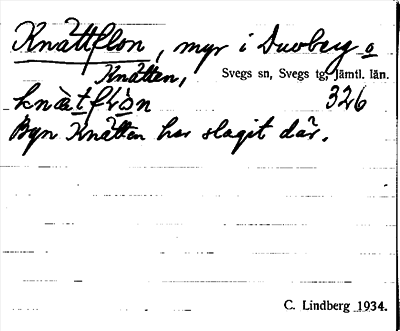 Knättflon, myr i Duvberg o
Knätten, Svegs sn, Svegs tg, Jämtl. län.
knä̀tfłò̱n 326
Byn Knätten har slagit där.
C. Lindberg 1934.